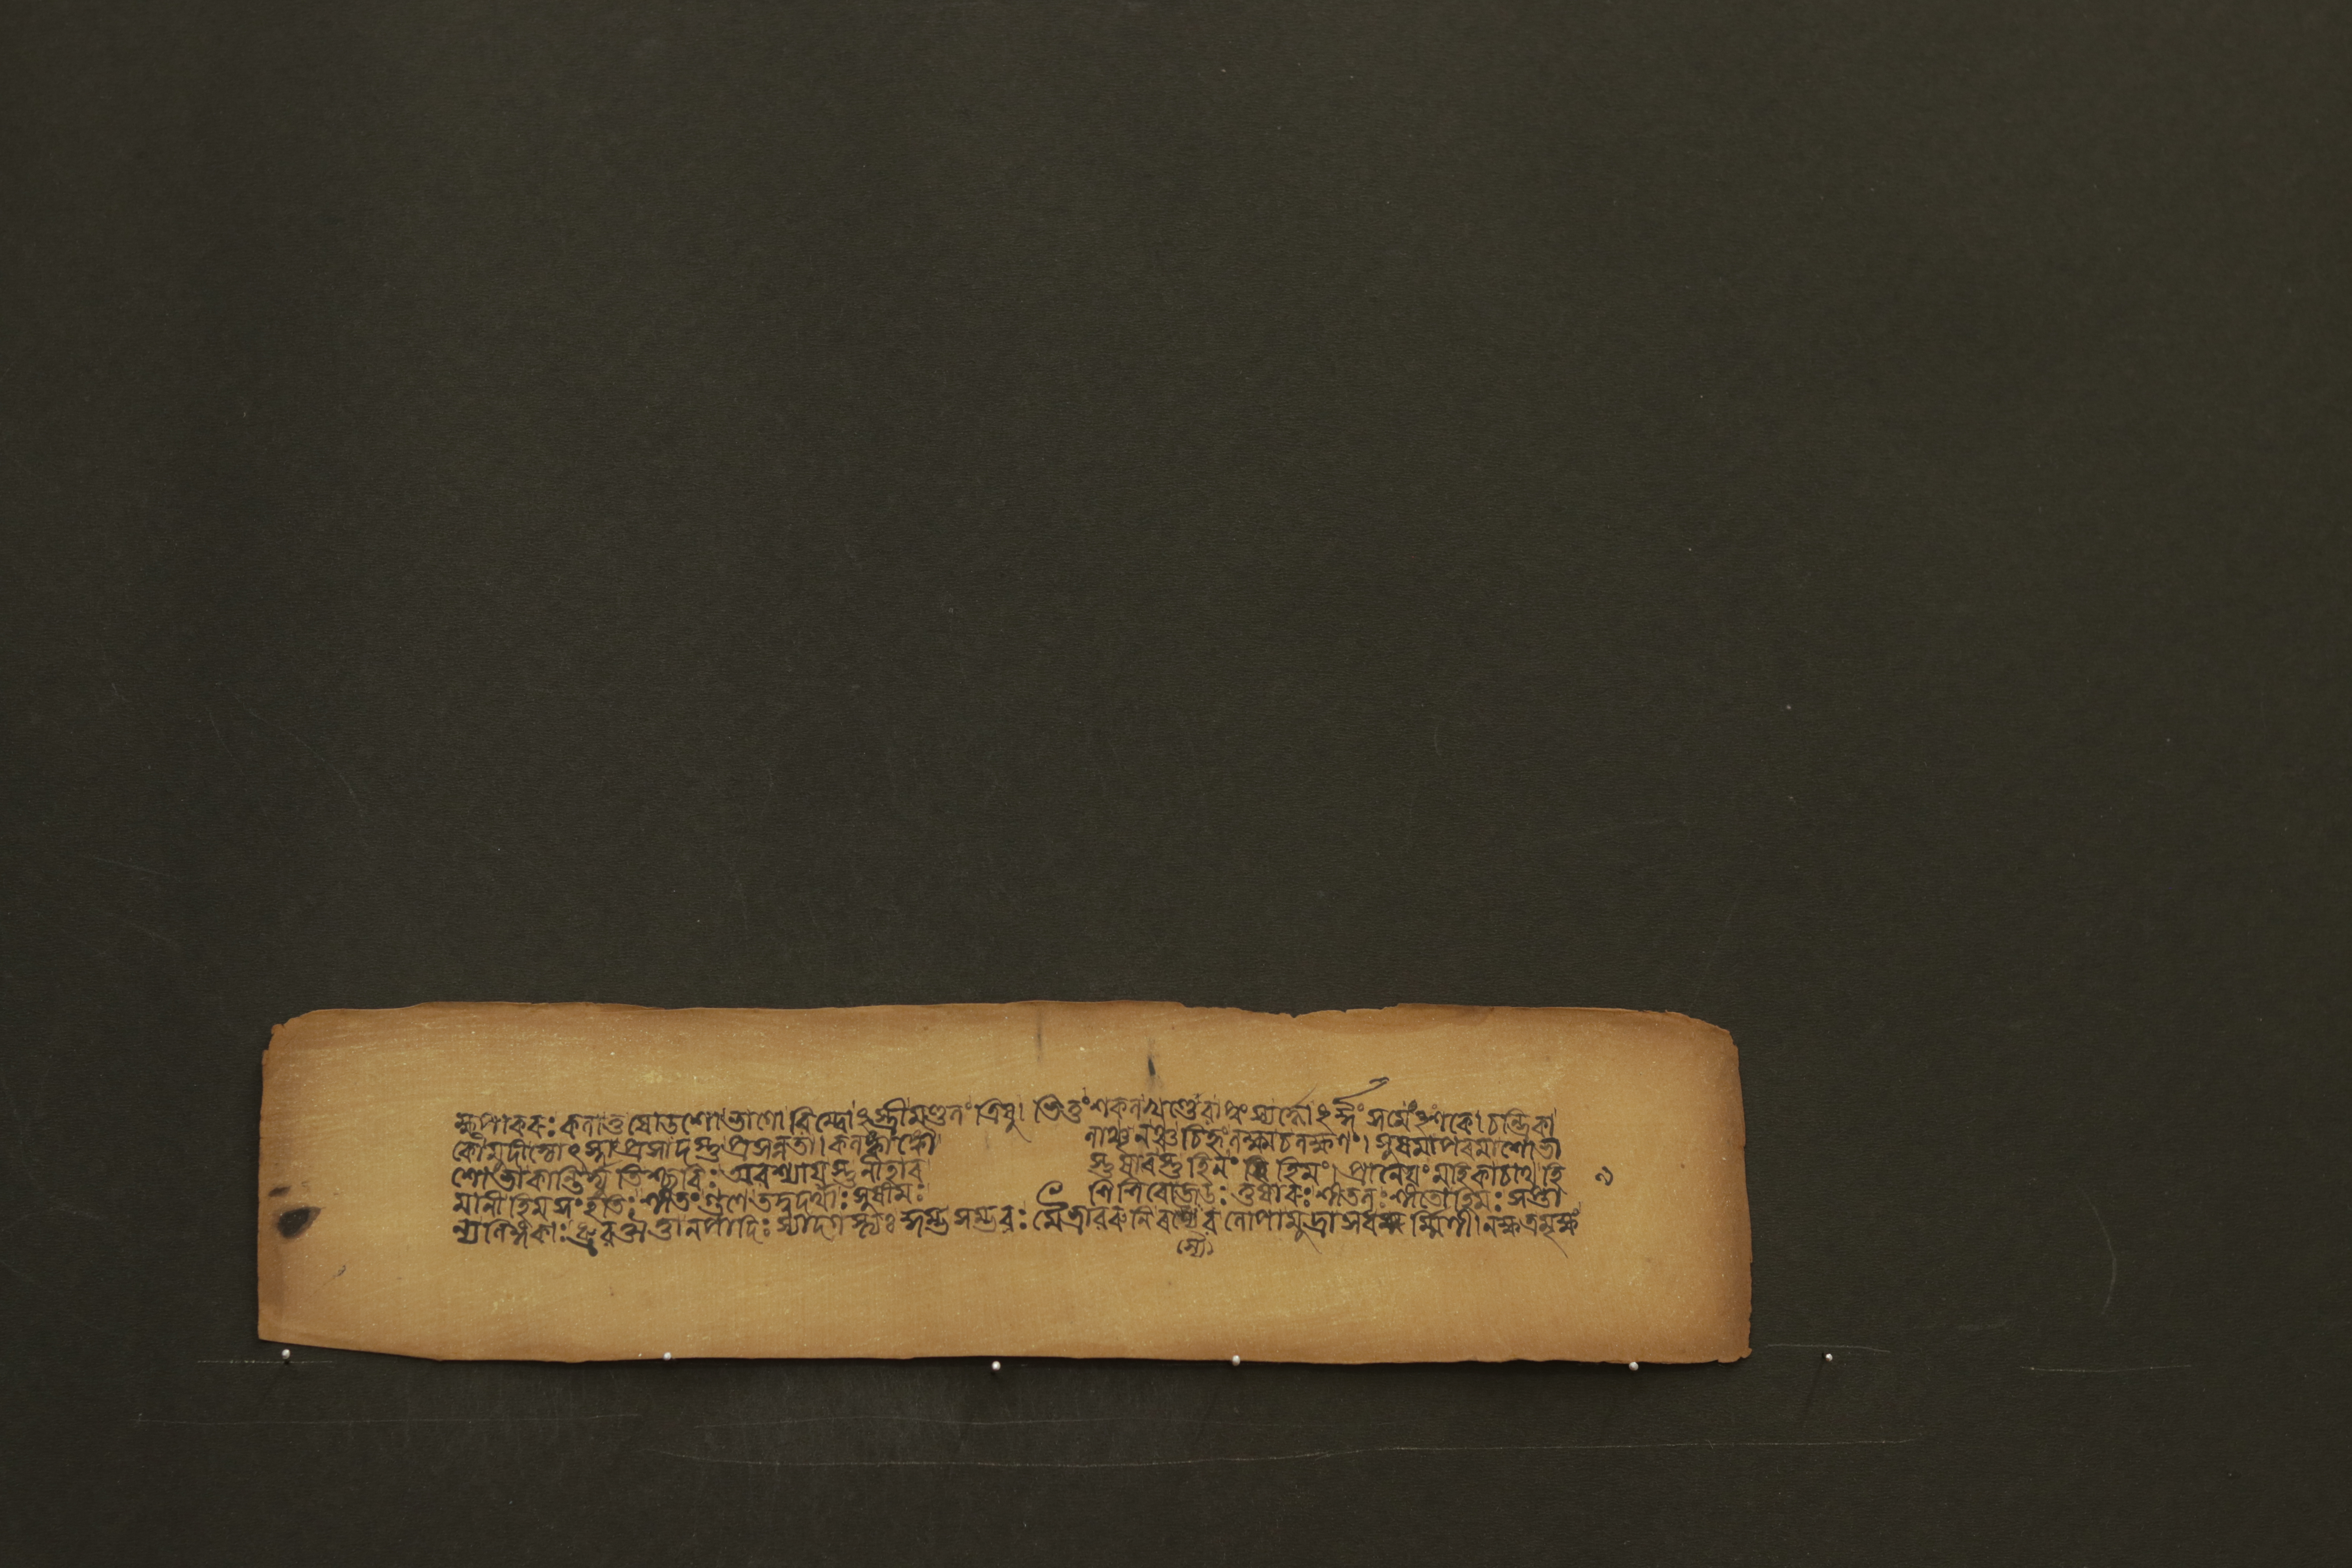 ক্ষপাকৰঃ কলাতু ষোডশো ভাগো বিম্বোঽস্ত্রীমণ্ডলং ত্রিষু। ভিত্তং শকলখণ্ডেবা পুংস্যৰ্দ্ধোঽৰ্দ্ধং সমেংঽশকে। চন্দ্রিকা
কৌমুদীজ্যোৎস্না প্রসাদস্তু প্রসন্নতা। কলঙ্কাঙ্কৌ লাঞ্ছনঞ্চ চিহ্নং লক্ষ্ম চ লক্ষণং। সুষমা পৰমা শোভা
শোভা কান্তিৰ্দ্যুতিশ্ছবিঃ অবশ্যায়স্তু নীহাৰ স্তুষাৰস্তুহিনং হিমং। প্রালেয়ং মিহিকা চাথ হি ৯
মানী হিমসংহতিঃ শীতং গুণে তদ্বদৰ্থাঃ সুষীমঃ শিশিৰো জডঃ তুষাৰঃ শীতলঃ শীতো হিমঃ সপ্তা
ন্যলিঙ্গকাঃ ধ্রুব ঔত্তানপাদিঃ স্যাদগস্ত্যঃ কুম্ভসম্ভবঃ মৈত্রাবৰুণিৰস্যৈব লোপামুদ্রা সধৰ্ম্মিণী। নক্ষত্রমৃক্ষং
স্যৈ